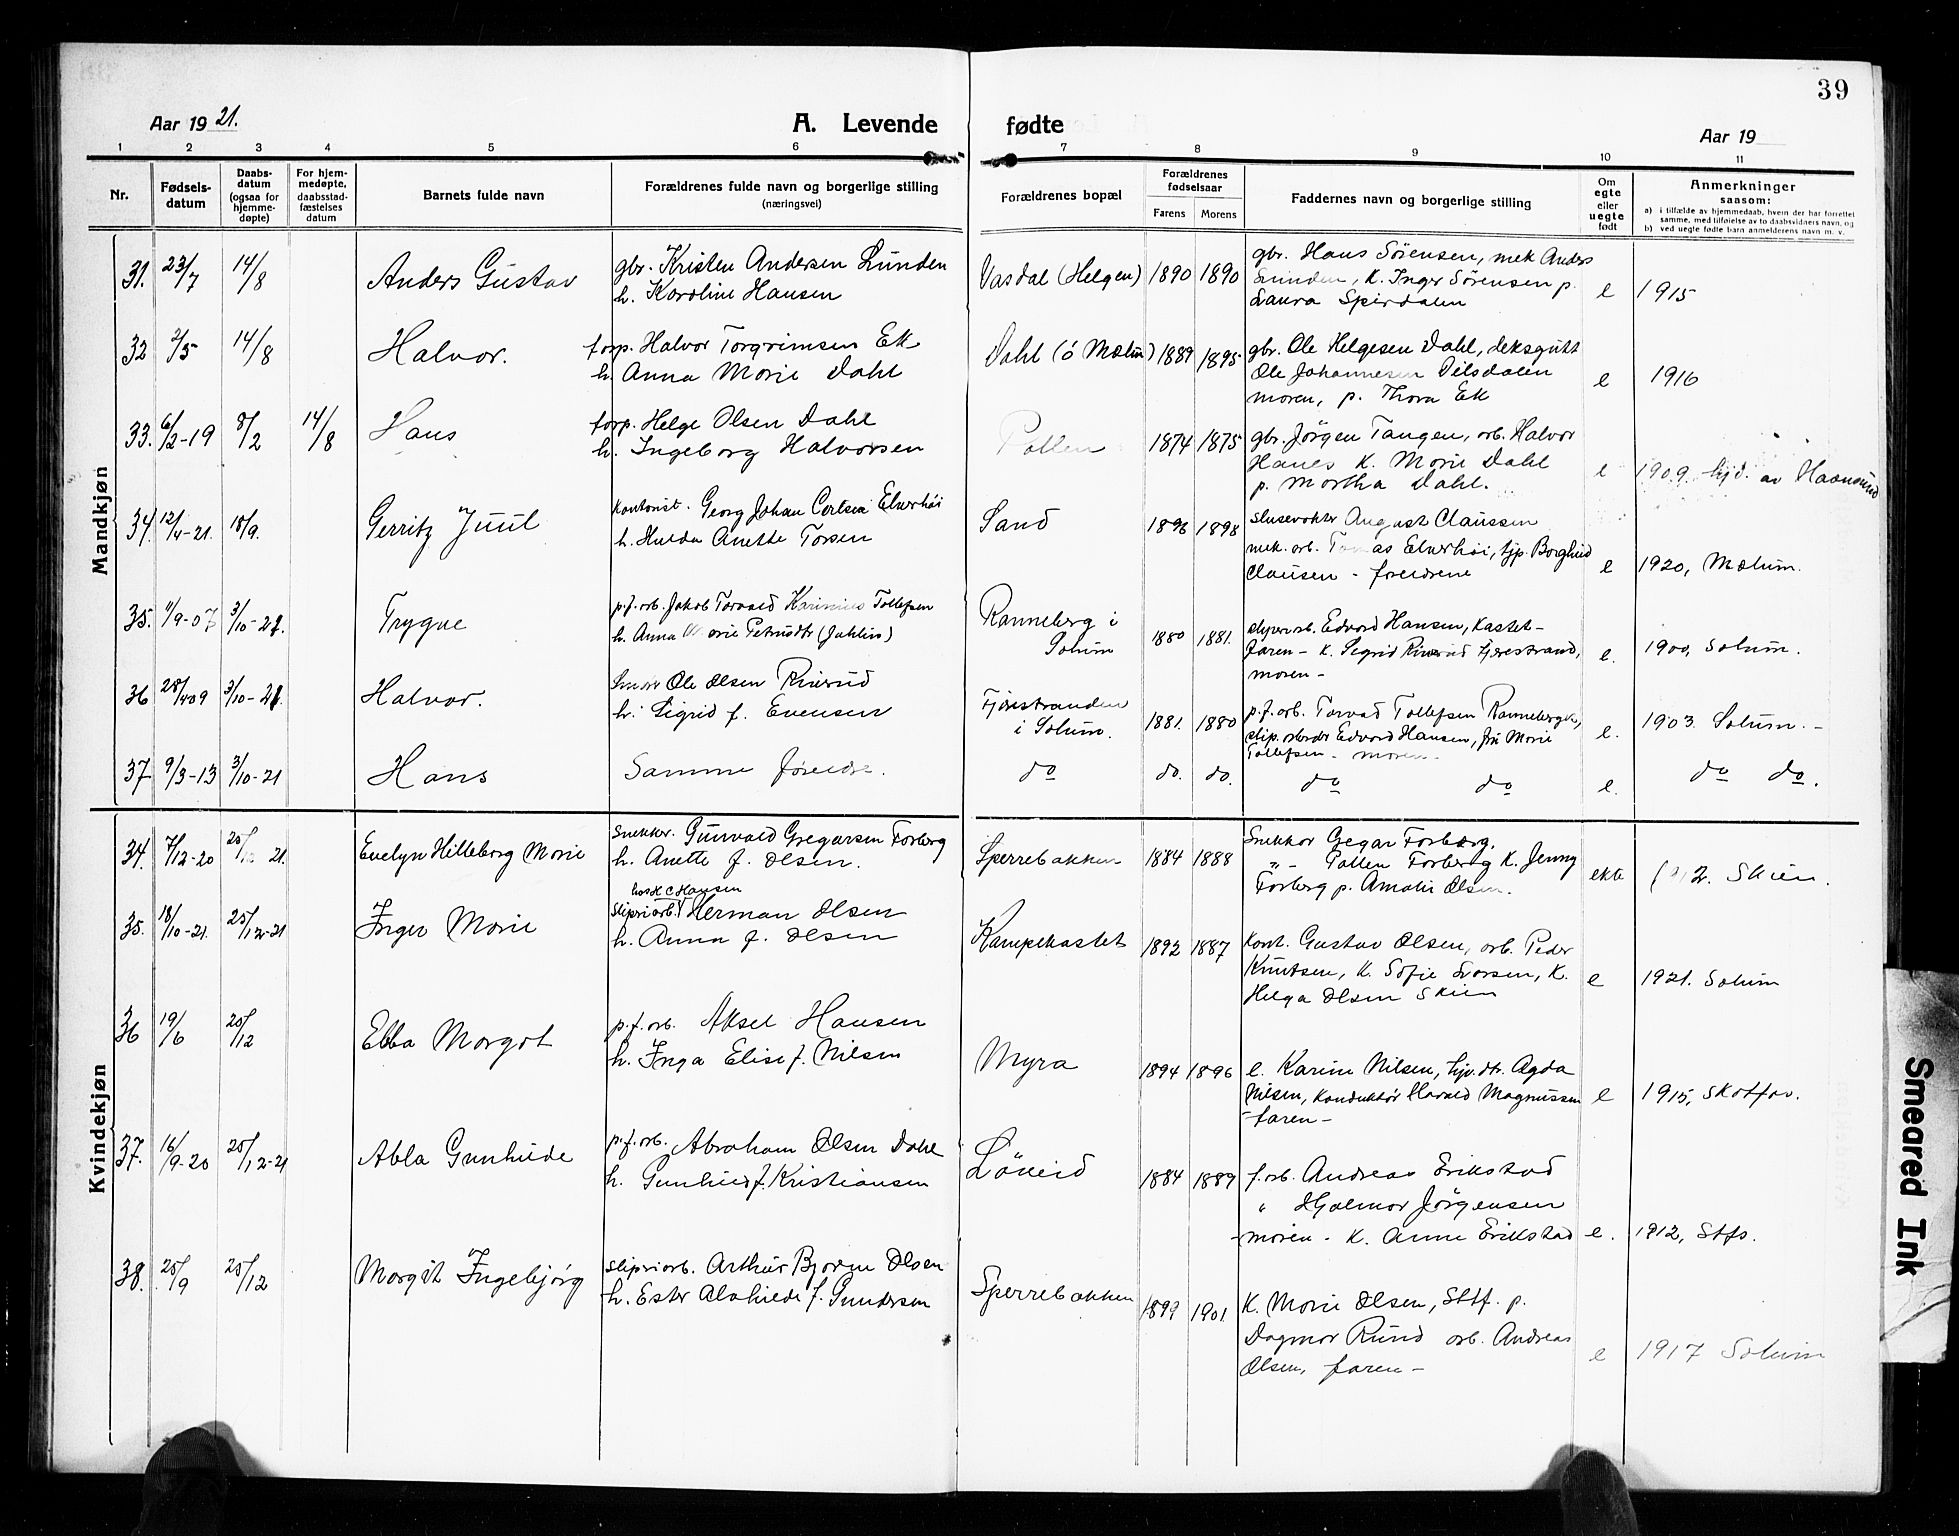 39
Aar 19 21.
A. Levende
fødte
Aar 19
1 2 3 4 5 6 7 8 9 10 11
Nr.
Fødsels-
datum
Daabs-
datum
(ogsaa for
hjemme-
døpte)
For hjem-
medøpte,
daabsstad-
fæstelses
datum
Barnets fulde navn
Forældrenes fulde navn og borgerlige stilling
(næringsvei)
Forældrenes bopæl
Forældrenes
fødselsaar
Farens Morens
Faddernes navn og borgerlige stilling
Om
egte
eller
uegte
født
Anmerkninger
saasom:
a) i tilfælde av hjemmedaab, hvem der har forrettet
samme, med tilføielse av to daabsvidners navn, og
b) ved uegte fødte barn anmelderens navn m. v.
Mandkjøn
31. 23/7 14/8 Anders Gustav
gbr. Kristen Andersen Lunden
h. Karoline Hansen
Vasdal (Helgen) 1890 1890
gbr. Hans Sörensen, mek Anders
Lunden, K. Inger Sörensen p.
Laura Spirdalen
e 1915
32 2/5 14/8 Halvor.
forp. Halvor Torgrimsen Ek
h. Anna Marie Dahl
Dahl (ö Mælum) 1889 1895
gbr. Ole Helgesen Dahl,
Ole Johannesen
moren, p. Thora Ek
e 1916
33. 6/2-19 8/2 14/8 Hans
forp. Helge Olsen Dahl
h. Ingeborg Halvorsen
Pollen 1874 1875
gbr. Jörgen Tangen, arb. Halvor
Hanes K. Marie Dahl
p. Martha Dahl.
e 1909. hjd. av
34. 12/4-21. 18/9. Gerritz Juul
Kontorist. Georg Johan Elverhöi
h. Hulda Anette Torsen
Sand 1896 1898
Slusevokter August Claussen
mek. arb. Elverhöi, hjp. Borghild
Clausen - foreldrene
e 1920, Mælum.
35. 1/9-07 3/10-21. Trygve
p.f. arb. Jakob Torvald Tollefsen
h. Anna Marie Petrusdtr
Ranneberg i
Solum 1880 1881.
Edvard Hansen, Kastet-
faren - K. Sigrid Fjærestrand,
moren -
e. 1900, Solum.
36 28/4 09 3/10-21. Halvor.
Ole Olsen
h. Sigrid f. Evensen
Fjærestranden
i Solum. 1881. 1880
p.f. arb. Torvald Tollefsen Ranneberg,
Edvard Hansen, fru Marie
Tollefsen - moren -
e. 1903. Solum. -
37 9/3-13 3/10-21 Hans
Samme foreldre.
do do. do. do do e. do do.
Kvindekjøn
34. 7/12-20 21. Evelyn Hilleborg Marie
Snekker. Gunvald Gregarsen Forberg
h. Anette f. Olsen.
Sperrebakken 1884 1888
Snekker Gregar Forberg.
" - Forberg K. Jenny
Forberg p. Amalie Olsen.
ekte 1912. Skien.
35. 18/10-21. 25/12-21 Inger Marie
hos H C Hansen
Sliperiarb. Herman Olsen
h. Anna f. Olsen
Kampekastet 1892 1887
Kont. Gustav Olsen, arb. Peder
Knutsen, K. Sofie Larsen, K.
Helga Olsen Skien
e 1921. Solum
36 19/6 25/12 Ebba Margot
p.f. arb. Aksel Hansen
h. Inga Elise f. Nilsen
Myra 1894 1896
e. Karine Nilsen, hjv. dtr. Agda
Nilsen, Konduktör Harald Magnussen
- faren -
e 1915, Skotfos.
37. 16/9-20 25/12-21 Abla Gunhilde
p.f. arb. Abraham Olsen Dahl
h. Gunhild f. Kristiansen
Löveid 1884 1889
f. arb. Andreas Erikstad
" Hjalmar Jörgensen
- moren - K. Anne Erikstad
e. 1912, Stfs.
38. 25/9 25/12 Margit Ingebjörg
Sliperiarb. Arthur Bjarne Olsen
h. Ester Alvhilde f. Gundersen
Sperrebakken 1899 1901
K. Marie Olsen, Sttf. p.
Dagmar Rund arb. Andreas
Olsen, faren -
e 1917 Solum
Smeared Ink